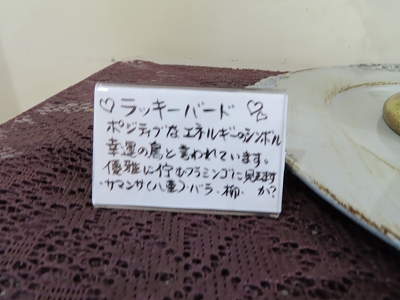 ♡ラッキーバード♡
ポジティブなエネルギーのシンボル
幸運の鳥と言われています。
優雅に佇むフラミンゴに見えます
・サマンサ(八重)バラ・柳・か?